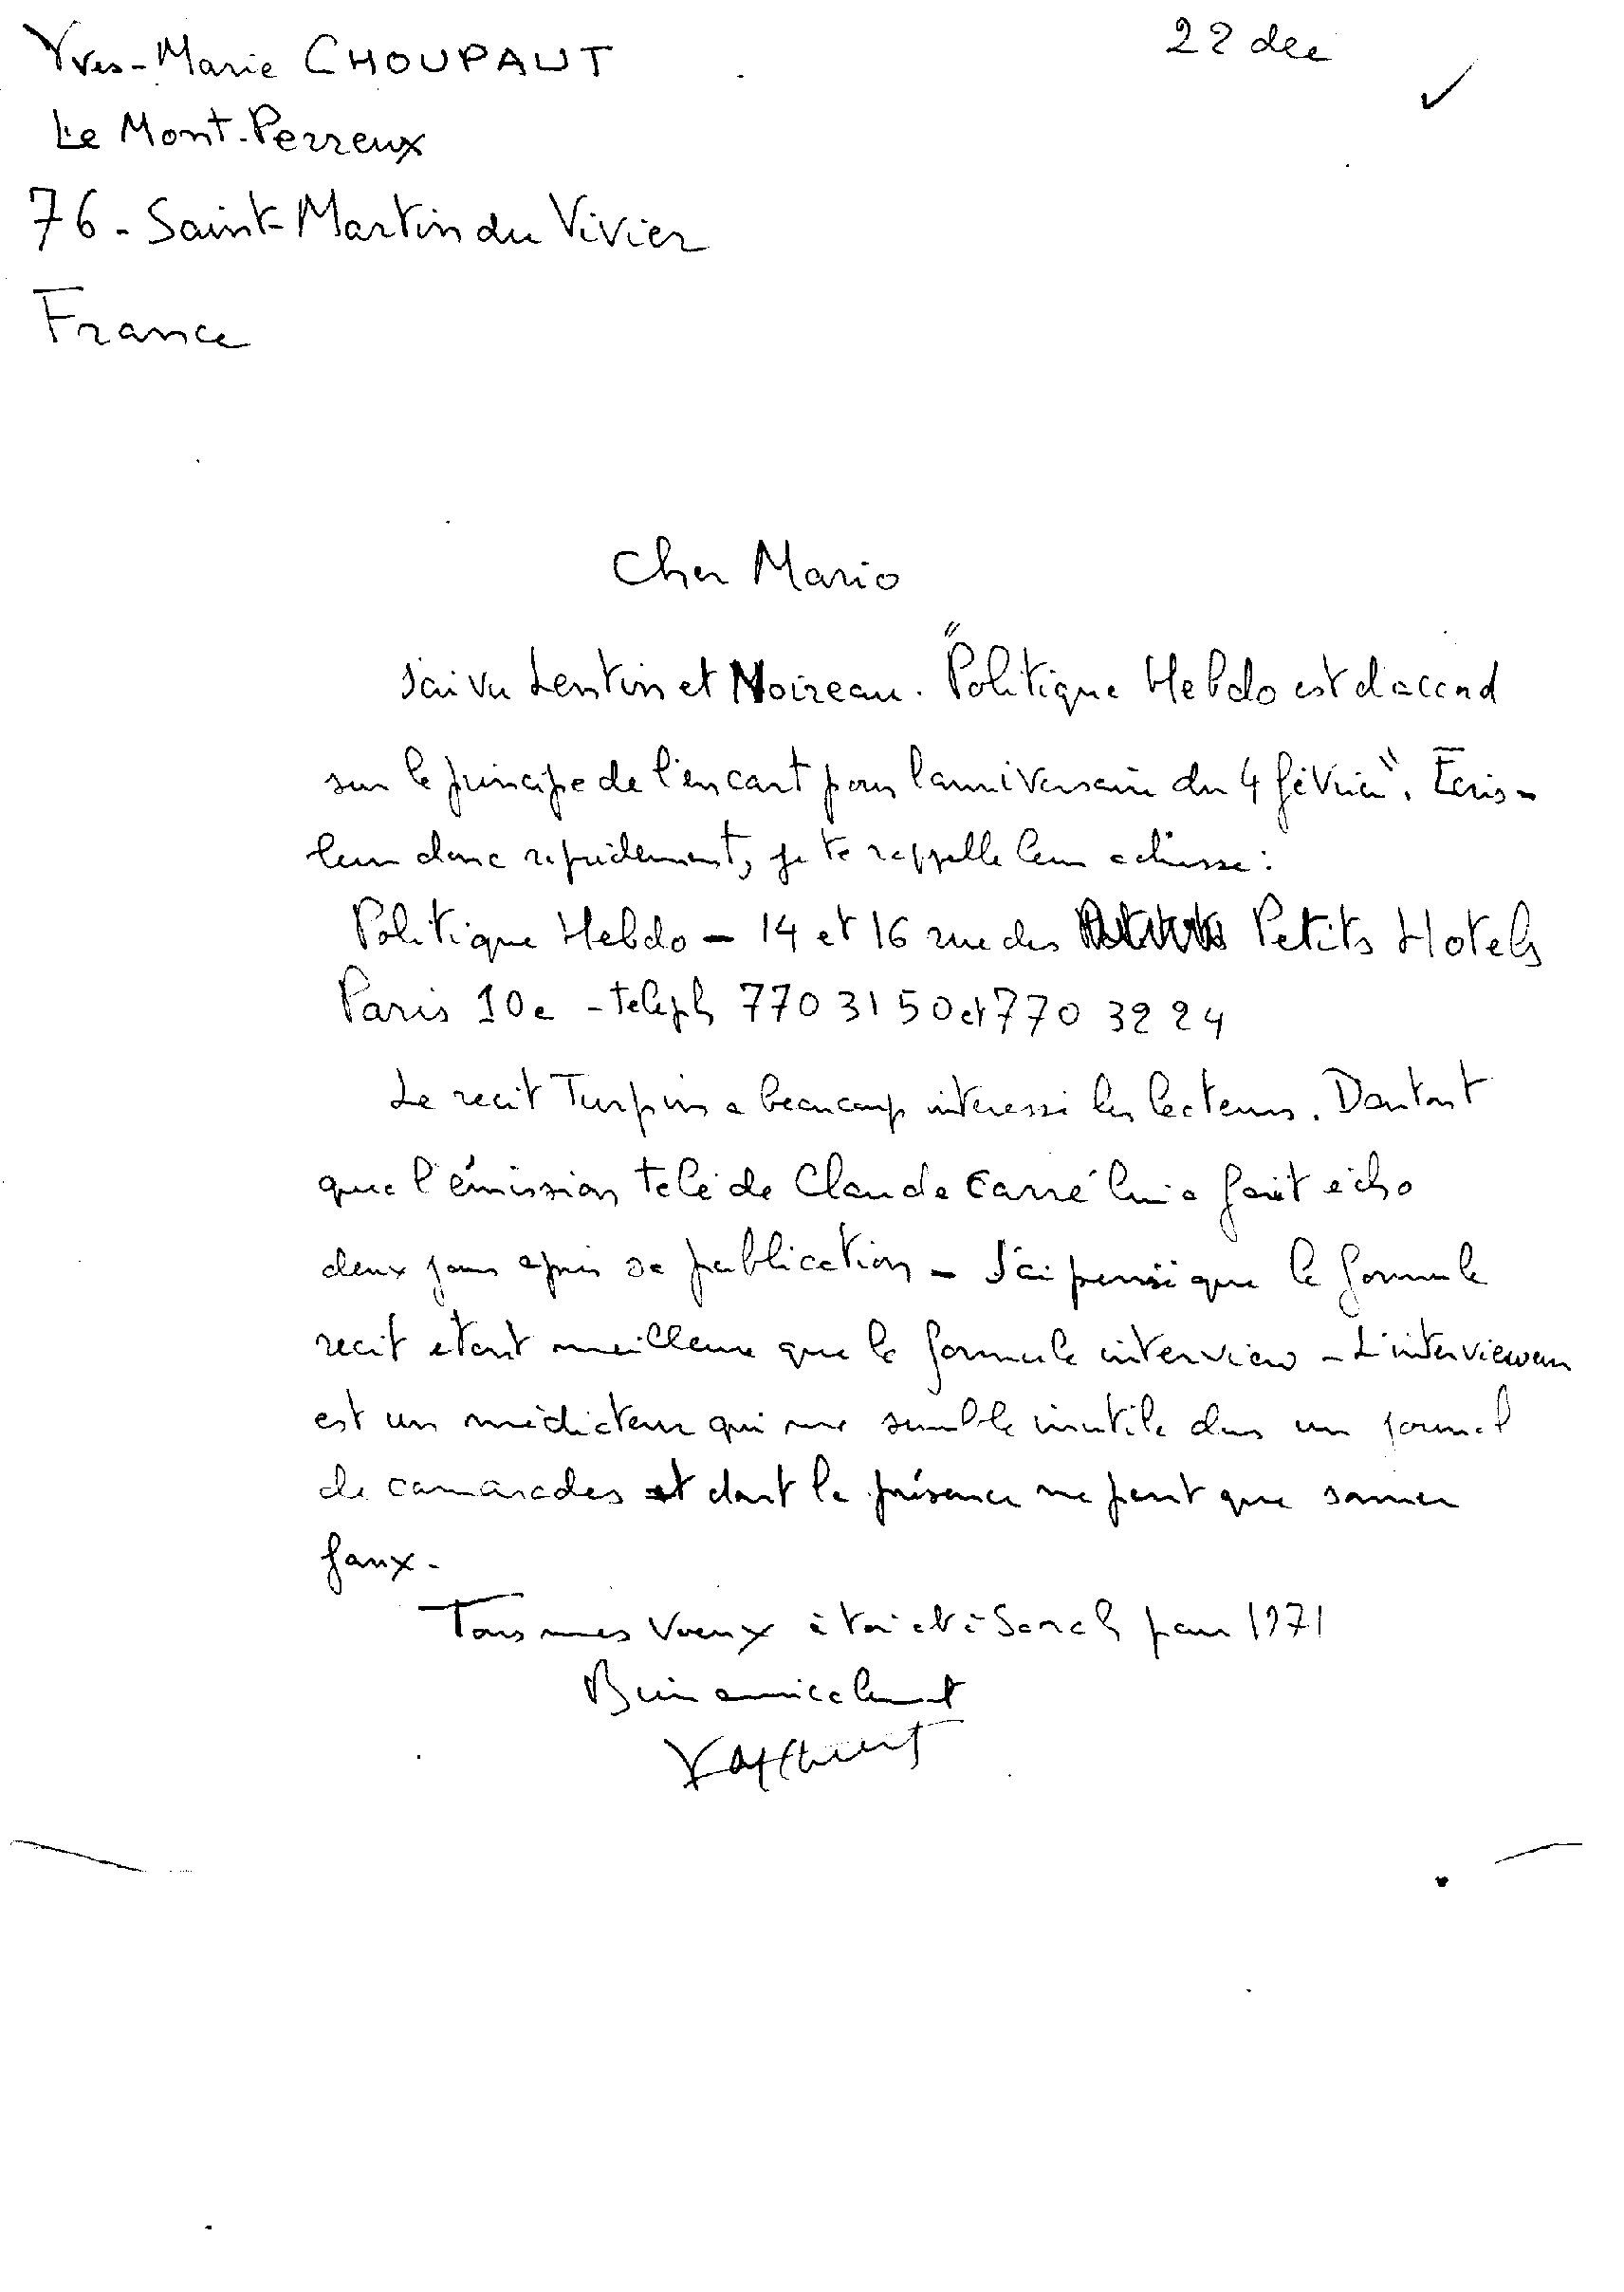 Yves-Marie CHOUPAUT
22 dec
Le Mont-Perreux
76 - Saint-Martin du Vivier
France
Cher Mario
J'ai vu Lentin et Noireau. "Politique Hebdo est d'accord
sur le principe de l'encart pour l'anniversaire du 4 février". Ecris-
leur donc rapidement, je te rappelle leur adresse :
Politique Hebdo - 14 et 16 rue des Petits Hotels
Paris 10e - teleph 770 31 50 et 770 32 24
Le recit Turpin a beaucoup interessé les lecteurs. Dautant
que l'émission télé de Claude Carré lui a fait écho
deux jours apres sa publication - J'ai pensé que la formule
recit etait meilleure que la formule interview - L'intervieweur
est un médiateur qui me semble inutile dans un journal
de camarades et dont la présence ne peut que sonner
faux -
Tous mes voeux à toi et à Sarah pour 1971
Bien amicalement